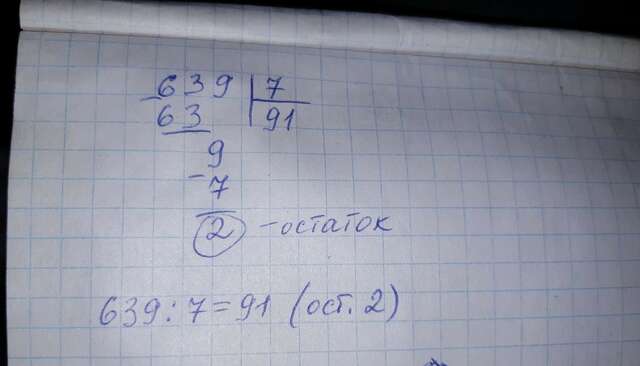 639 7
63 91
9
-7
2 - остаток
639 : 7 = 91 (ост. 2)